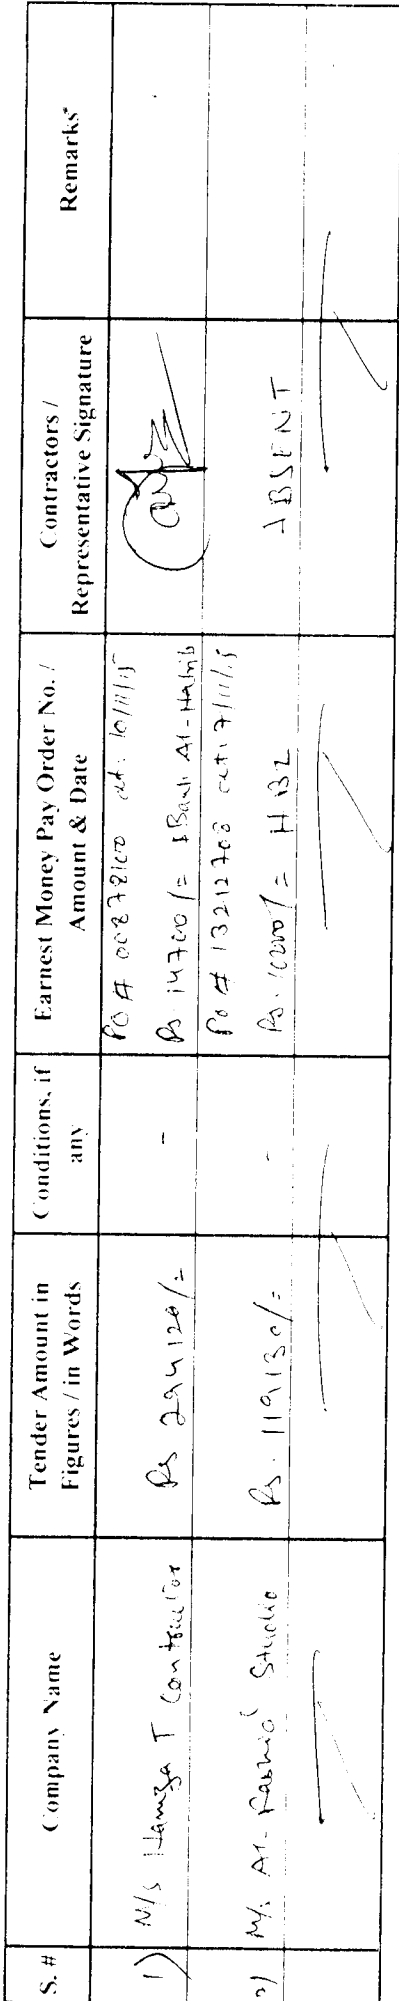 S. #
Company Name
Tender Amount in
Figures / in Words
Conditions, if
any
Earnest Money Pay Order No. /
Amount & Date
Contractors /
Representative Signature
Remarks*
1)
M/s Hamza T Contractor
Rs 294120/=
-
PO # 00878100 dt. 10/11/15
Rs. 14700/= Bank Al-Habib
2)
M/s Al-Rashid Studio
Rs. 119130/=
-
PO # 13212708 dt. 7/11/15
Rs. 10200/= HBL
ABSENT